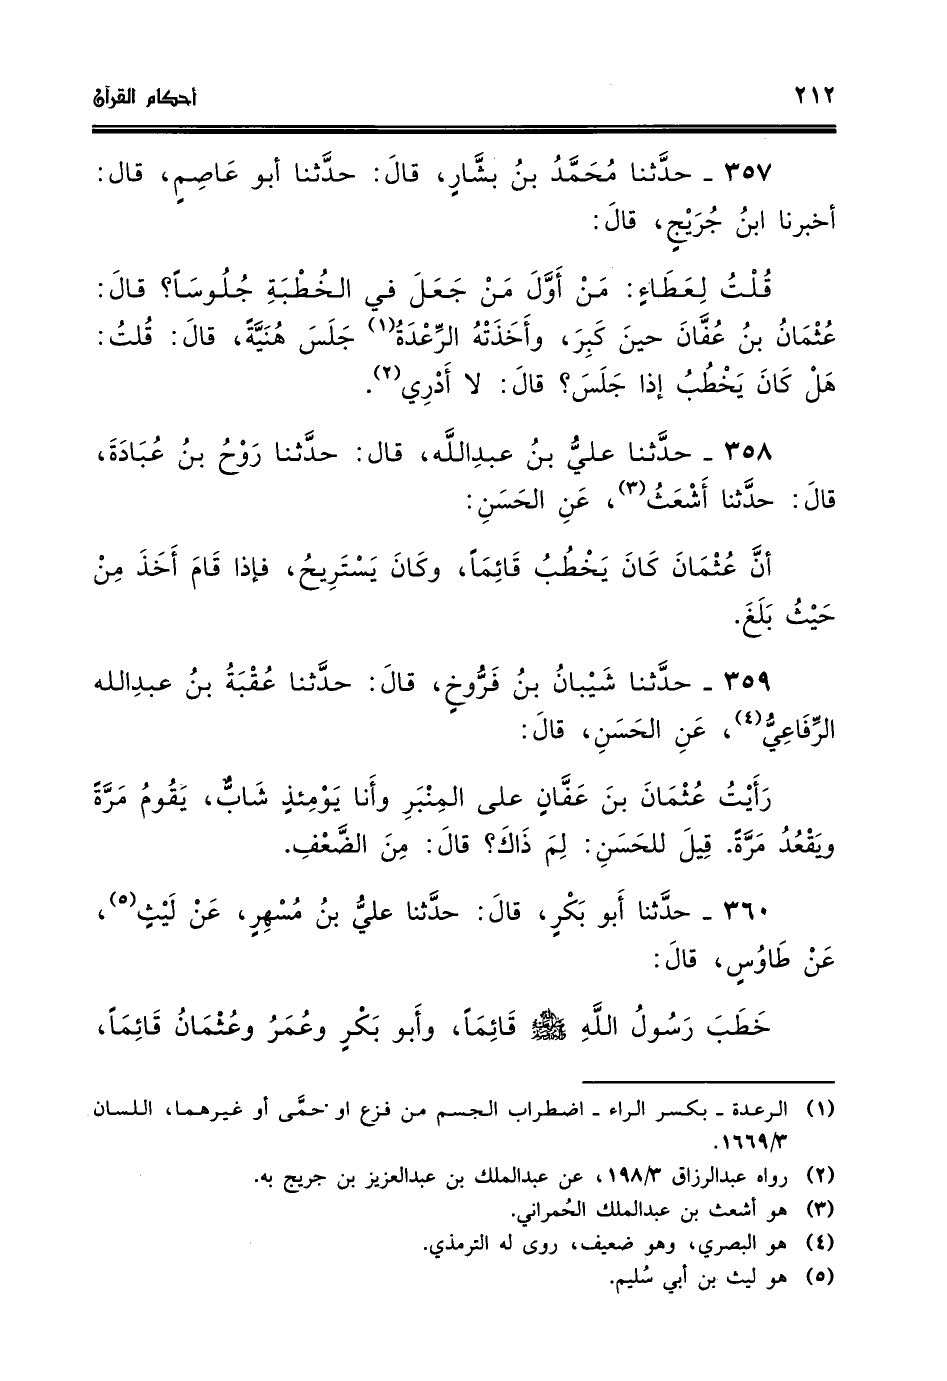 ٢١٢ أحكام القرآن
٣٥٧ ـ حدَّثنا مُحَمَّدُ بنُ بشَّارٍ، قالَ: حدَّثنا أبو عَاصِمٍ، قال:
أخبرنا ابنُ جُرَيْجٍ، قالَ:
قُلْتُ لِعَطَاءٍ: مَنْ أَوَّلَ مَنْ جَعَلَ في الخُطْبَةِ جُلُوسَاً؟ قالَ:
عُثْمَانُ بنُ عُفَّانَ حينَ كَبِرَ، وأَخَذَتْهُ الرِّعْدَةُ(١) جَلَسَ هُنَيَّةً، قالَ: قُلتُ:
هَلْ كَانَ يَخْطُبُ إذا جَلَسَ؟ قالَ: لا أَدْرِي(٢).
٣٥٨ ـ حدَّثنا عليُّ بنُ عبدِاللَّه، قال: حدَّثنا رَوْحُ بنُ عُبَادَةَ،
قالَ: حدَّثنا أَشْعَثُ(٣)، عَنِ الحَسَنِ:
أنَّ عُثْمَانَ كَانَ يَخْطُبُ قَائِمَاً، وكَانَ يَسْتَرِيحُ، فإذا قَامَ أَخَذَ مِنْ
حَيْثُ بَلَغَ.
٣٥٩ ـ حدَّثنا شَيْبانُ بنُ فَرُّوخٍ، قالَ: حدَّثنا عُقْبَةُ بنُ عبدِالله
الرِّفَاعِيُّ(٤)، عَنِ الحَسَنِ، قالَ:
رَأَيْتُ عُثْمَانَ بنَ عَفَّانٍ على المِنْبَرِ وأنا يَوْمئِذٍ شَابٌّ، يَقُومُ مَرَّةً
ويَقْعُدُ مَرَّةً. قِيلَ للحَسَنِ: لِمَ ذَاكَ؟ قالَ: مِنَ الضَّعْفِ.
٣٦٠ ـ حدَّثنا أَبو بَكْرٍ، قالَ: حدَّثنا عليُّ بنُ مُسْهِرٍ، عَنْ لَيْثٍ(٥)،
عَنْ طَاوُسٍ، قالَ:
خَطَبَ رَسُولُ اللَّهِ ﷺ قَائِمَاً، وأَبو بَكْرٍ وعُمَرُ وعُثْمَانُ قَائِمَاً،
(١) الرعدة ـ بكسر الراء ـ اضطراب الجسم من فزع او حمَّى أو غيرهما، اللسان
١٦٦٩/٣.
(٢) رواه عبدالرزاق ١٩٨/٣، عن عبدالملك بن عبدالعزيز بن جريج به.
(٣) هو أشعث بن عبدالملك الحُمراني.
(٤) هو البصري، وهو ضعيف، روى له الترمذي.
(٥) هو ليث بن أبي سُليم.